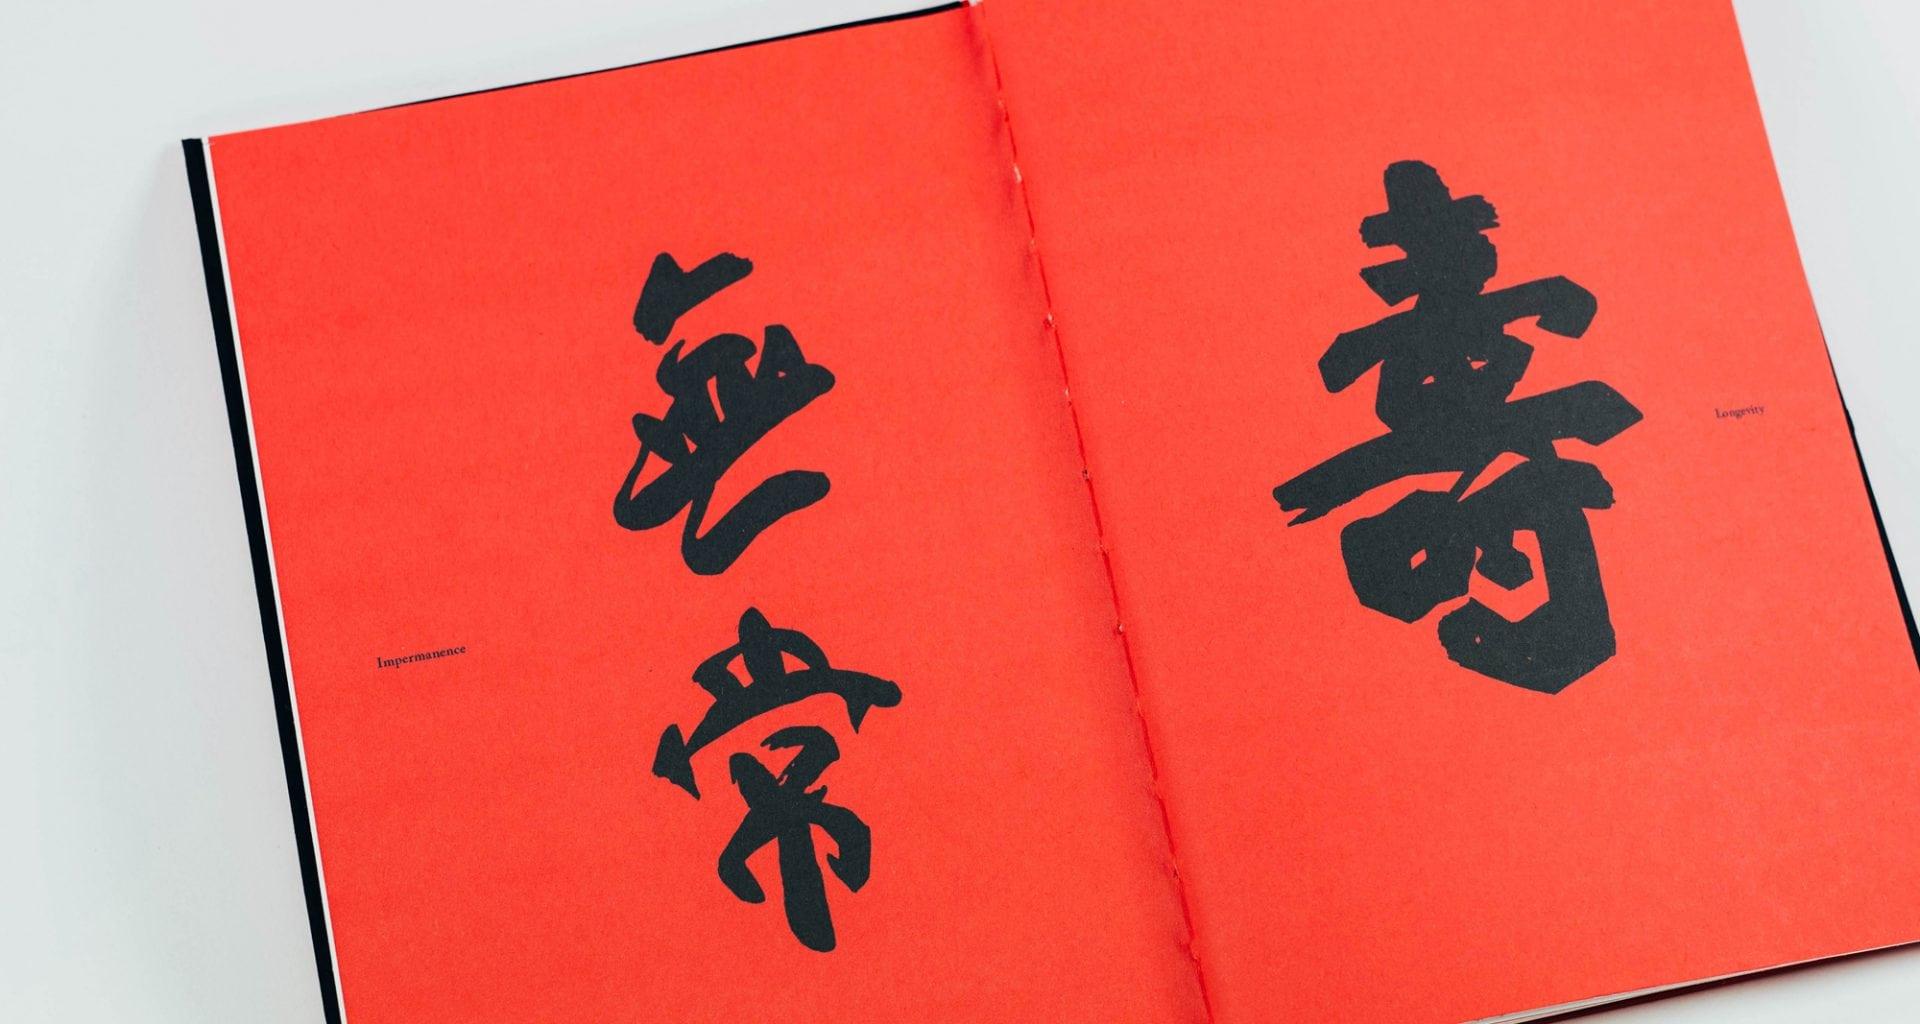 無常
Impermanence
壽
Longevity